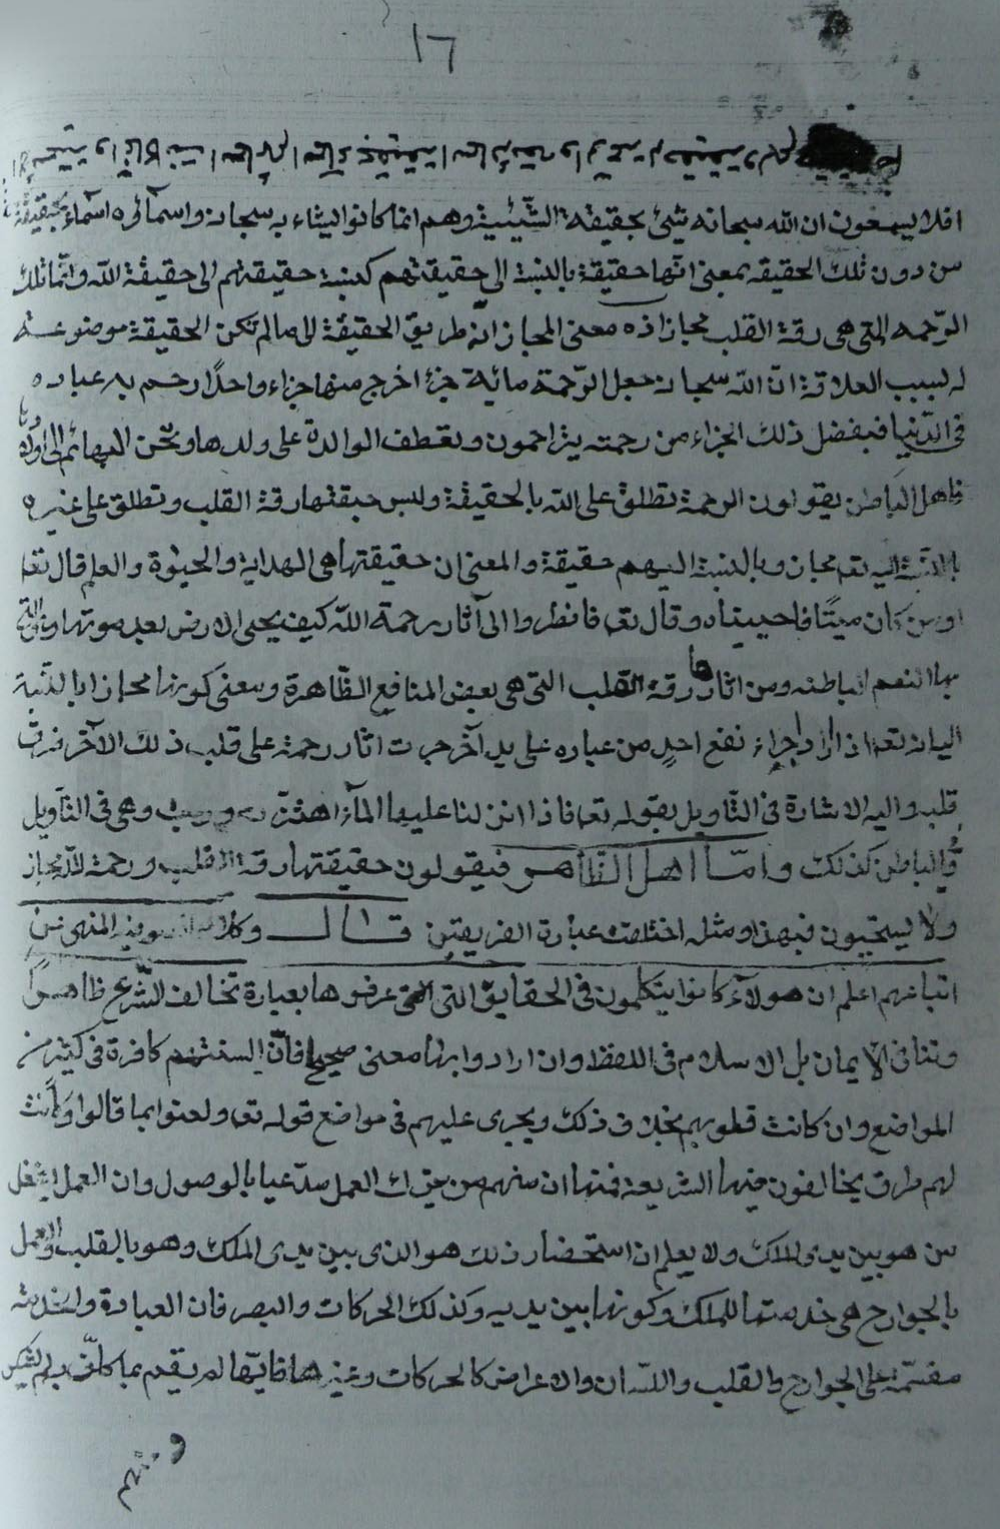 ١٦
افلا يسمعون ان الله سبحانه شئ بحقيقة الشيئية وهم انما كانوا اشياء به سبحانه واسمائه اسماء بحقيقة
من دون تلك الحقيقه بمعنى انها حقيقة بالنسبة الى حقيقتهم كنسبة حقيقتهم الى حقيقة الله وانما تلك
الرحمه التي هي رقة القلب مجاز اذ معنى المجاز انه طريق الحقيقة لا ما لم تكن الحقيقة موضوعة
له لسبب العلاقة ان الله سبحانه جعل الرحمة مائة جزء اخرج منها جزاء واحدا رحم به عباده
في الدنيا فبفضل ذلك الجزاء من رحمته يتراحمون وتعطف الوالدة على ولدها وتحن البهائم الى اولادها
فاهل الباطن يقولون الرحمة تطلق على الله بالحقيقة وليس حقيقتها رقة القلب وتطلق على غيره
بالنسبة اليه تعـ مجاز وبالنسبة اليهم حقيقة والمعنى ان حقيقتها هي الهداية والحيوة والعلم قال تعا
اومن كان ميتا فاحييناه وقال تعـ فانظروا الى آثار رحمة الله كيف يحيى الارض بعد موتها
بها النعم الباطنه ومن اثارها رقة القلب التي هي بعض المنافع الظاهرة ومعنى كونها مجازا بالنسبة
اليه انه تعـ اذا اراد اجراء نفع احد من عباده على يد آخر جرت اثار رحمة على قلب ذلك الآخر فرق
قلبه واليه الاشارة في التأويل بقوله تعـ فاذا انزلنا عليها الماء اهتزت وربت وهي في التأويل
والباطن كذلك واما اهل الظاهر فيقولون حقيقتها رقة القلب ورحمة الله مجاز
ولا يستحيون فبهذا ومثله اختلفت عبارة الفريقين قال وكلام الصوفية المنهى عن
اتباعهم اعلم ان هولاء كانوا يتكلمون في الحقايق التي عرفوها بعبارة تخالف الشرع ظاهرا
وتنافى الايمان بل الاسلام في اللفظ وان ارادوا بها معنى صحيحا فان السنتهم كافرة في كثير من
المواضع وان كانت قلوبهم بخلاف ذلك ويجرى عليهم في مواضع قوله تعـ ولعنوا بما قالوا وكانت
لهم طرق يخالفون فيها الشريعة فمنها ان منهم من يترك العمل مدعيا بالوصول وان العمل يشغل
من هو بين يدى الملك ولا يعلم ان استحضار ذلك هو الذى بين يدى الملك وهو بالقلب والعمل
بالجوارح هي خدمتها للملك وكونها بين يديه وكذلك الحركات والبصر فان العبادة والخدمة
مقسمة على الجوارح والقلب واللسان والاعراض كالحركات وغيرها فايها لم يقم بما كلف به لم يشكر